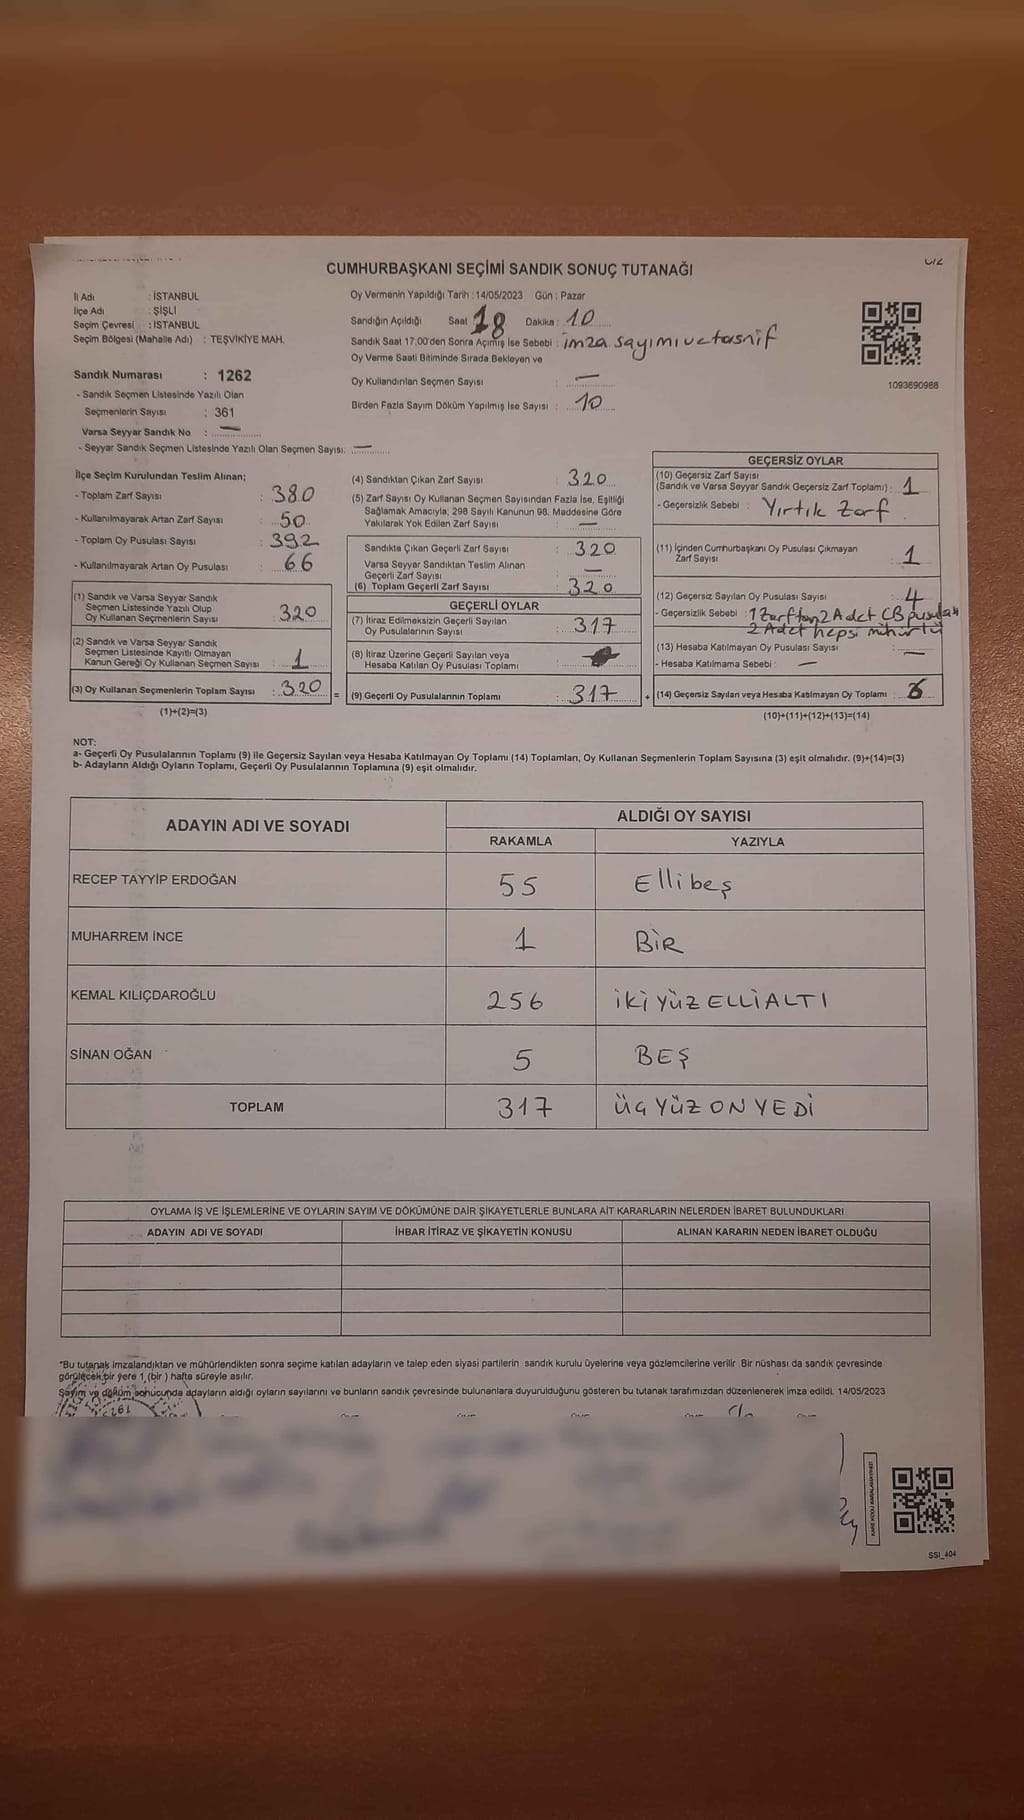 CUMHURBAŞKANI SEÇİMİ SANDIK SONUÇ TUTANAĞI
İl Adı : İSTANBUL
İlçe Adı : ŞİŞLİ
Seçim Çevresi : İSTANBUL
Seçim Bölgesi (Mahalle Adı) : TEŞVİKİYE MAH.
Oy Vermenin Yapıldığı Tarih : 14/05/2023 Gün : Pazar
Sandığın Açıldığı Saat : 18 Dakika : 10
Sandık Saat 17:00'den Sonra Açılmış İse Sebebi : imza sayımı ve tasnif
Oy Verme Saati Bitiminde Sırada Bekleyen ve
Oy Kullandırılan Seçmen Sayısı : —
Birden Fazla Sayım Döküm Yapılmış İse Sayısı : 10
1093690988
Sandık Numarası : 1262
- Sandık Seçmen Listesinde Yazılı Olan
Seçmenlerin Sayısı : 361
Varsa Seyyar Sandık No : —
- Seyyar Sandık Seçmen Listesinde Yazılı Olan Seçmen Sayısı: —
İlçe Seçim Kurulundan Teslim Alınan;
- Toplam Zarf Sayısı : 380
- Kullanılmayarak Artan Zarf Sayısı : 50
- Toplam Oy Pusulası Sayısı : 392
- Kullanılmayarak Artan Oy Pusulası : 66
(1) Sandık ve Varsa Seyyar Sandık
Seçmen Listesinde Yazılı Olup
Oy Kullanan Seçmenlerin Sayısı : 320
(2) Sandık ve Varsa Seyyar Sandık
Seçmen Listesinde Kayıtlı Olmayan
Kanun Gereği Oy Kullanan Seçmen Sayısı : 1
(3) Oy Kullanan Seçmenlerin Toplam Sayısı : 320 =
(1)+(2)=(3)
(4) Sandıktan Çıkan Zarf Sayısı : 320
(5) Zarf Sayısı Oy Kullanan Seçmen Sayısından Fazla İse, Eşitliği
Sağlamak Amacıyla; 298 Sayılı Kanunun 98. Maddesine Göre
Yakılarak Yok Edilen Zarf Sayısı : —
Sandıkta Çıkan Geçerli Zarf Sayısı : 320
Varsa Seyyar Sandıktan Teslim Alınan
Geçerli Zarf Sayısı : —
(6) Toplam Geçerli Zarf Sayısı : 320
GEÇERLİ OYLAR
(7) İtiraz Edilmeksizin Geçerli Sayılan
Oy Pusulalarının Sayısı : 317
(8) İtiraz Üzerine Geçerli Sayılan veya
Hesaba Katılan Oy Pusulası Toplamı :
(9) Geçerli Oy Pusulalarının Toplamı : 317 +
GEÇERSİZ OYLAR
(10) Geçersiz Zarf Sayısı
(Sandık ve Varsa Seyyar Sandık Geçersiz Zarf Toplamı) : 1
- Geçersizlik Sebebi : Yırtık Zarf
(11) İçinden Cumhurbaşkanı Oy Pusulası Çıkmayan
Zarf Sayısı : 1
(12) Geçersiz Sayılan Oy Pusulası Sayısı : 4
- Geçersizlik Sebebi : 1 Zarftan 2 Adet CB pusulası
2 Adet hepsi mühürlü
(13) Hesaba Katılmayan Oy Pusulası Sayısı : —
- Hesaba Katılmama Sebebi : —
(14) Geçersiz Sayılan veya Hesaba Katılmayan Oy Toplamı :
(10)+(11)+(12)+(13)=(14)
NOT:
a- Geçerli Oy Pusulalarının Toplamı (9) ile Geçersiz Sayılan veya Hesaba Katılmayan Oy Toplamı (14) Toplamları, Oy Kullanan Seçmenlerin Toplam Sayısına (3) eşit olmalıdır. (9)+(14)=(3)
b- Adayların Aldığı Oyların Toplamı, Geçerli Oy Pusulalarının Toplamına (9) eşit olmalıdır.
ADAYIN ADI VE SOYADI
ALDIĞI OY SAYISI
RAKAMLA YAZIYLA
RECEP TAYYİP ERDOĞAN 55 Ellibeş
MUHARREM İNCE 1 BİR
KEMAL KILIÇDAROĞLU 256 İKİ YÜZ ELLİ ALTI
SİNAN OĞAN 5 BEŞ
TOPLAM 317 ÜÇ YÜZ ON YEDİ
OYLAMA İŞ VE İŞLEMLERİNE VE OYLARIN SAYIM VE DÖKÜMÜNE DAİR ŞİKAYETLERLE BUNLARA AİT KARARLARIN NELERDEN İBARET BULUNDUKLARI
ADAYIN ADI VE SOYADI İHBAR İTİRAZ VE ŞİKAYETİN KONUSU ALINAN KARARIN NEDEN İBARET OLDUĞU
*Bu tutanak imzalandıktan ve mühürlendikten sonra seçime katılan adayların ve talep eden siyasi partilerin sandık kurulu üyelerine veya gözlemcilerine verilir. Bir nüshası da sandık çevresinde
görülecek bir yere 1 (bir ) hafta süreyle asılır.
Sayım ve döküm sonucunda adayların aldığı oyların sayılarını ve bunların sandık çevresinde bulunanlara duyurulduğunu gösteren bu tutanak tarafımızdan düzenlenerek imza edildi. 14/05/2023
SSI_404